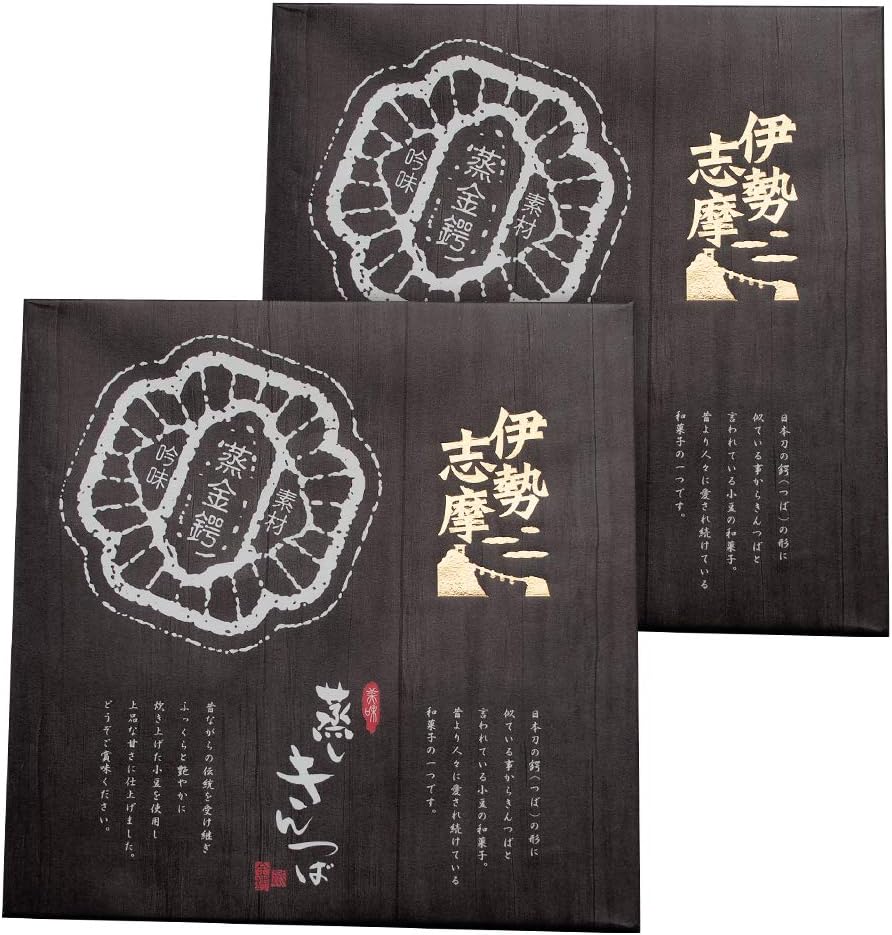 伊勢
志摩
素材
蒸金鍔
吟味
日本刀の鍔（つば）の形に
似ている事からきんつばと
言われている小豆の和菓子。
昔より人々に愛され続けている
和菓子の一つです。
伊勢
志摩
素材
蒸金鍔
吟味
日本刀の鍔（つば）の形に
似ている事からきんつばと
言われている小豆の和菓子。
昔より人々に愛され続けている
和菓子の一つです。
美味
蒸し
きんつば
昔ながらの伝統を受け継ぎ
ふっくらと艶やかに
炊き上げた小豆を使用し
上品な甘さに仕上げました。
どうぞご賞味ください。